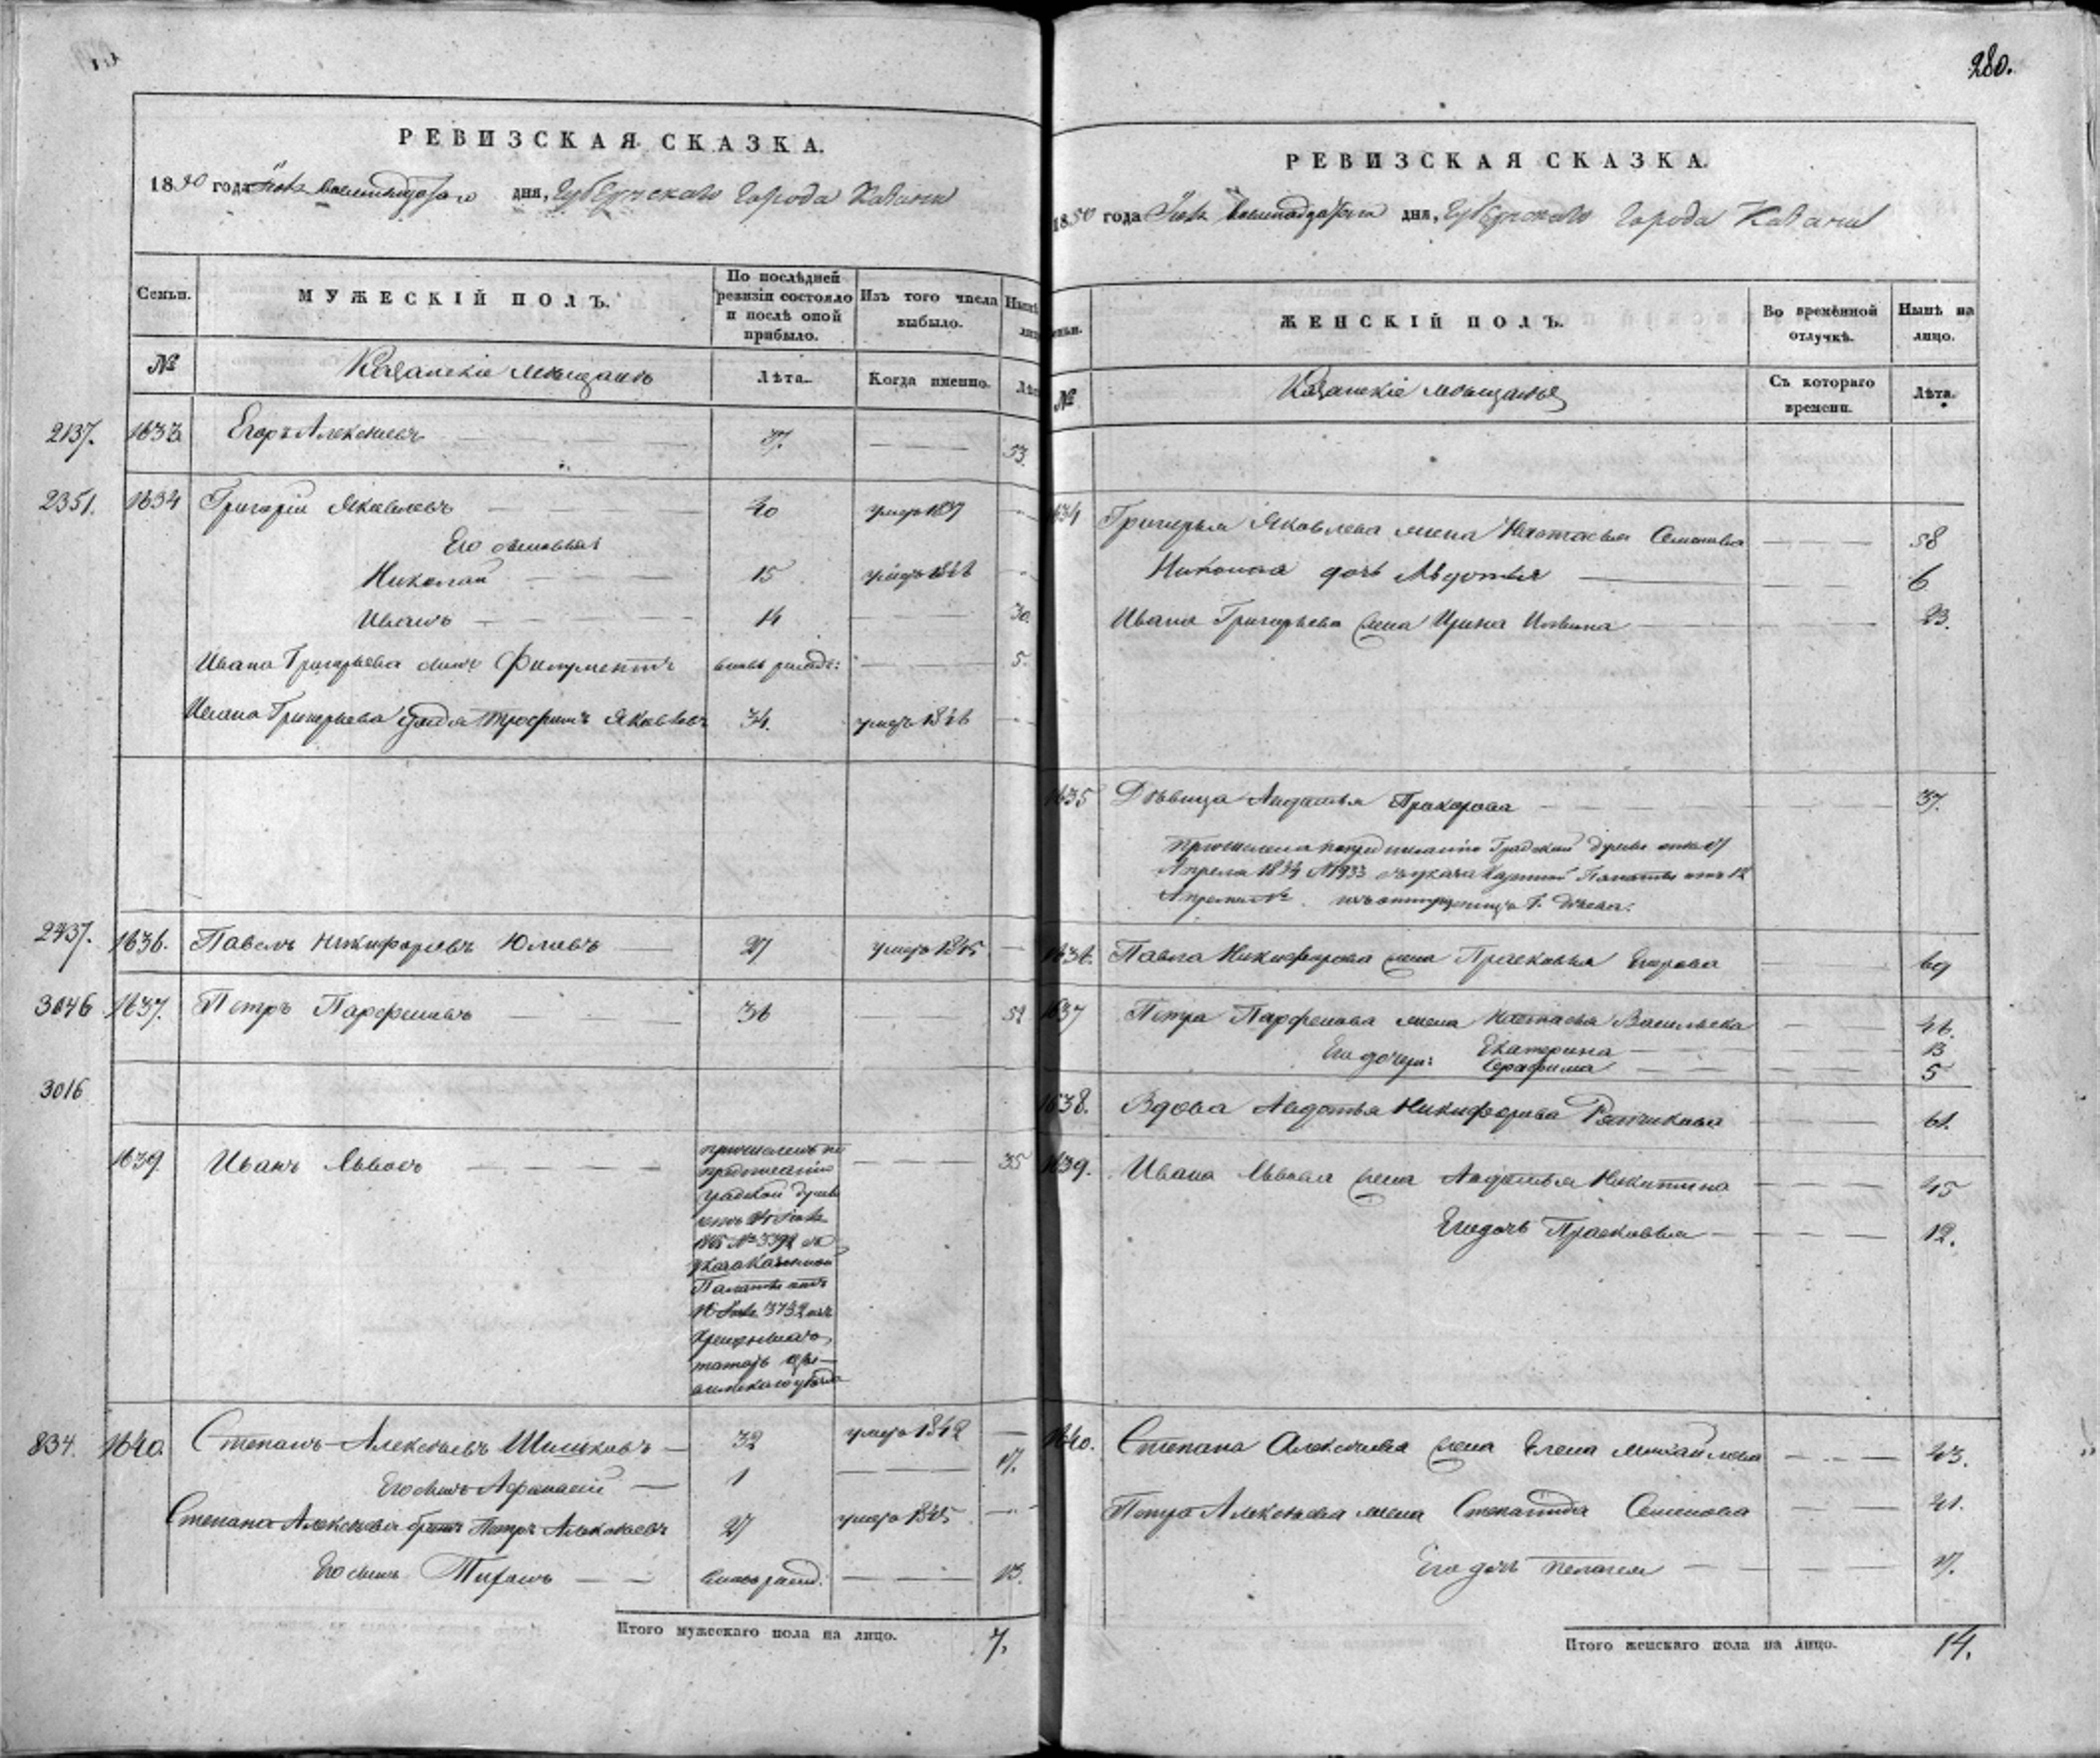 280.
РЕВИЗСКАЯ СКАЗКА.
1850 года дня, Губернскаго Города Казани
Семьи.
МУЖЕСКІЙ ПОЛЪ.
По послѣдней ревизіи состояло и послѣ оной прибыло.
Изъ того числа выбыло.
№
Казанскіе мѣщане
Лѣта.
Когда именно.
2137. 1633 Егоръ Алексѣевъ 37. 53.
2351. 1634 Григорій Яковлевъ 40 умеръ 1837
Его сыновья:
Николай 15 умеръ 1846
Иванъ 14 30.
Ивана Григорьева сынъ вновь рожд: 5.
Ивана Григорьева дядя Трофимъ Яковлевъ 34. умеръ 1846
2437. 1636. Павелъ Никифоровъ Юлаевъ 27 умеръ 1845
3046 1637. Петръ Парфеновъ 36 52
3016
1639. Иванъ Львовъ причисленъ по 35
предписанію
градской думы
1845 № 3392
указа Казенной
Палаты отъ
3732 изъ
татаръ
834. 1640. Степанъ Алексѣевъ Шишковъ 32 умеръ 1842
Его сынъ Афанасій 1 17.
Степана Алексѣева братъ Петръ Алексѣевъ 27 умеръ 1845
Его сынъ вновь рожд: 13.
Итого мужескаго пола на лицо. 7.
РЕВИЗСКАЯ СКАЗКА.
1850 года дня, Губернскаго Города Казани
ЖЕНСКІЙ ПОЛЪ.
Во временной отлучкѣ.
Нынѣ на лицо.
№
Казанскіе мѣщанки
Съ котораго времени.
Лѣта.
1634 Григорья Яковлева жена Настасья Семенова 58
Николая дочь Авдотья 6
Ивана Григорьева жена Ирина 23.
1635 Дѣвица Авдотья Прохорова 37.
причислена по предписанію Градской думы отъ 17
Апрѣля № 1933 указа Казенной Палаты отъ 12
Апрѣля №
1636. Павла Никифорова жена Прасковья Егорова 69
1637 Петра Парфенова жена Настасья Васильева 46.
Его дочери: Екатерина 13
Серафима 5
1638. Вдова Авдотья Никифорова 61.
1639. Ивана Львова жена Авдотья Никитина 45
Его дочь Прасковья 12.
1640. Степана Алексѣева жена Елена Михайлова 43.
Петра Алексѣева жена Степанида Семенова 41.
Его дочь Пелагея 17.
Итого женскаго пола на лицо. 14.